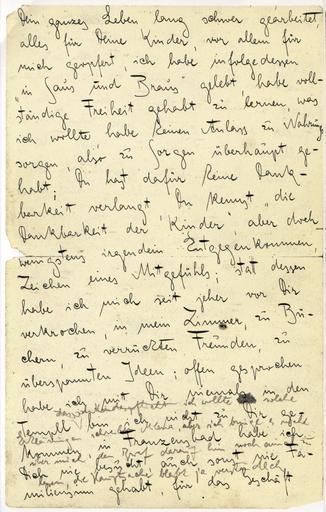 Dein ganzes Leben lang schwer gearbeitet,
alles für Deine Kinder, vor allem für
mich geopfert ich habe infolgedessen
"in Saus und Braus" gelebt habe voll-
ständige Freiheit gehabt zu lernen, was
ich wollte habe keinen Anlass zu Nahrung
sorgen, also zu Sorgen überhaupt ge-
habt; Du hast dafür keine Dank-
barkeit verlangt Du kennst "die
Dankbarkeit der Kinder", aber doch
wenigstens irgendein Entgegenkommen,
Zeichen eines Mitgefühls; statt dessen
habe ich mich seit jeher vor Dir
verkrochen, in mein Zimmer, zu Bü-
chern, zu verrückten Freunden, zu
überspannten Ideen; offen gesprochen
habe ich mit Dir niemals in den
Tempel bin ich nicht zu Dir ge-
kommen, in Franzensbad habe ich
Dich nie besucht auch sonst nie Fa-
miliensinn gehabt, für das Geschäft